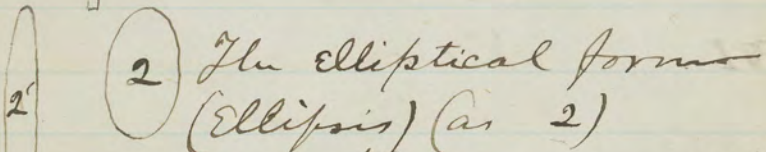 2' 2 The elliptical form
(Ellipsis) (as 2)